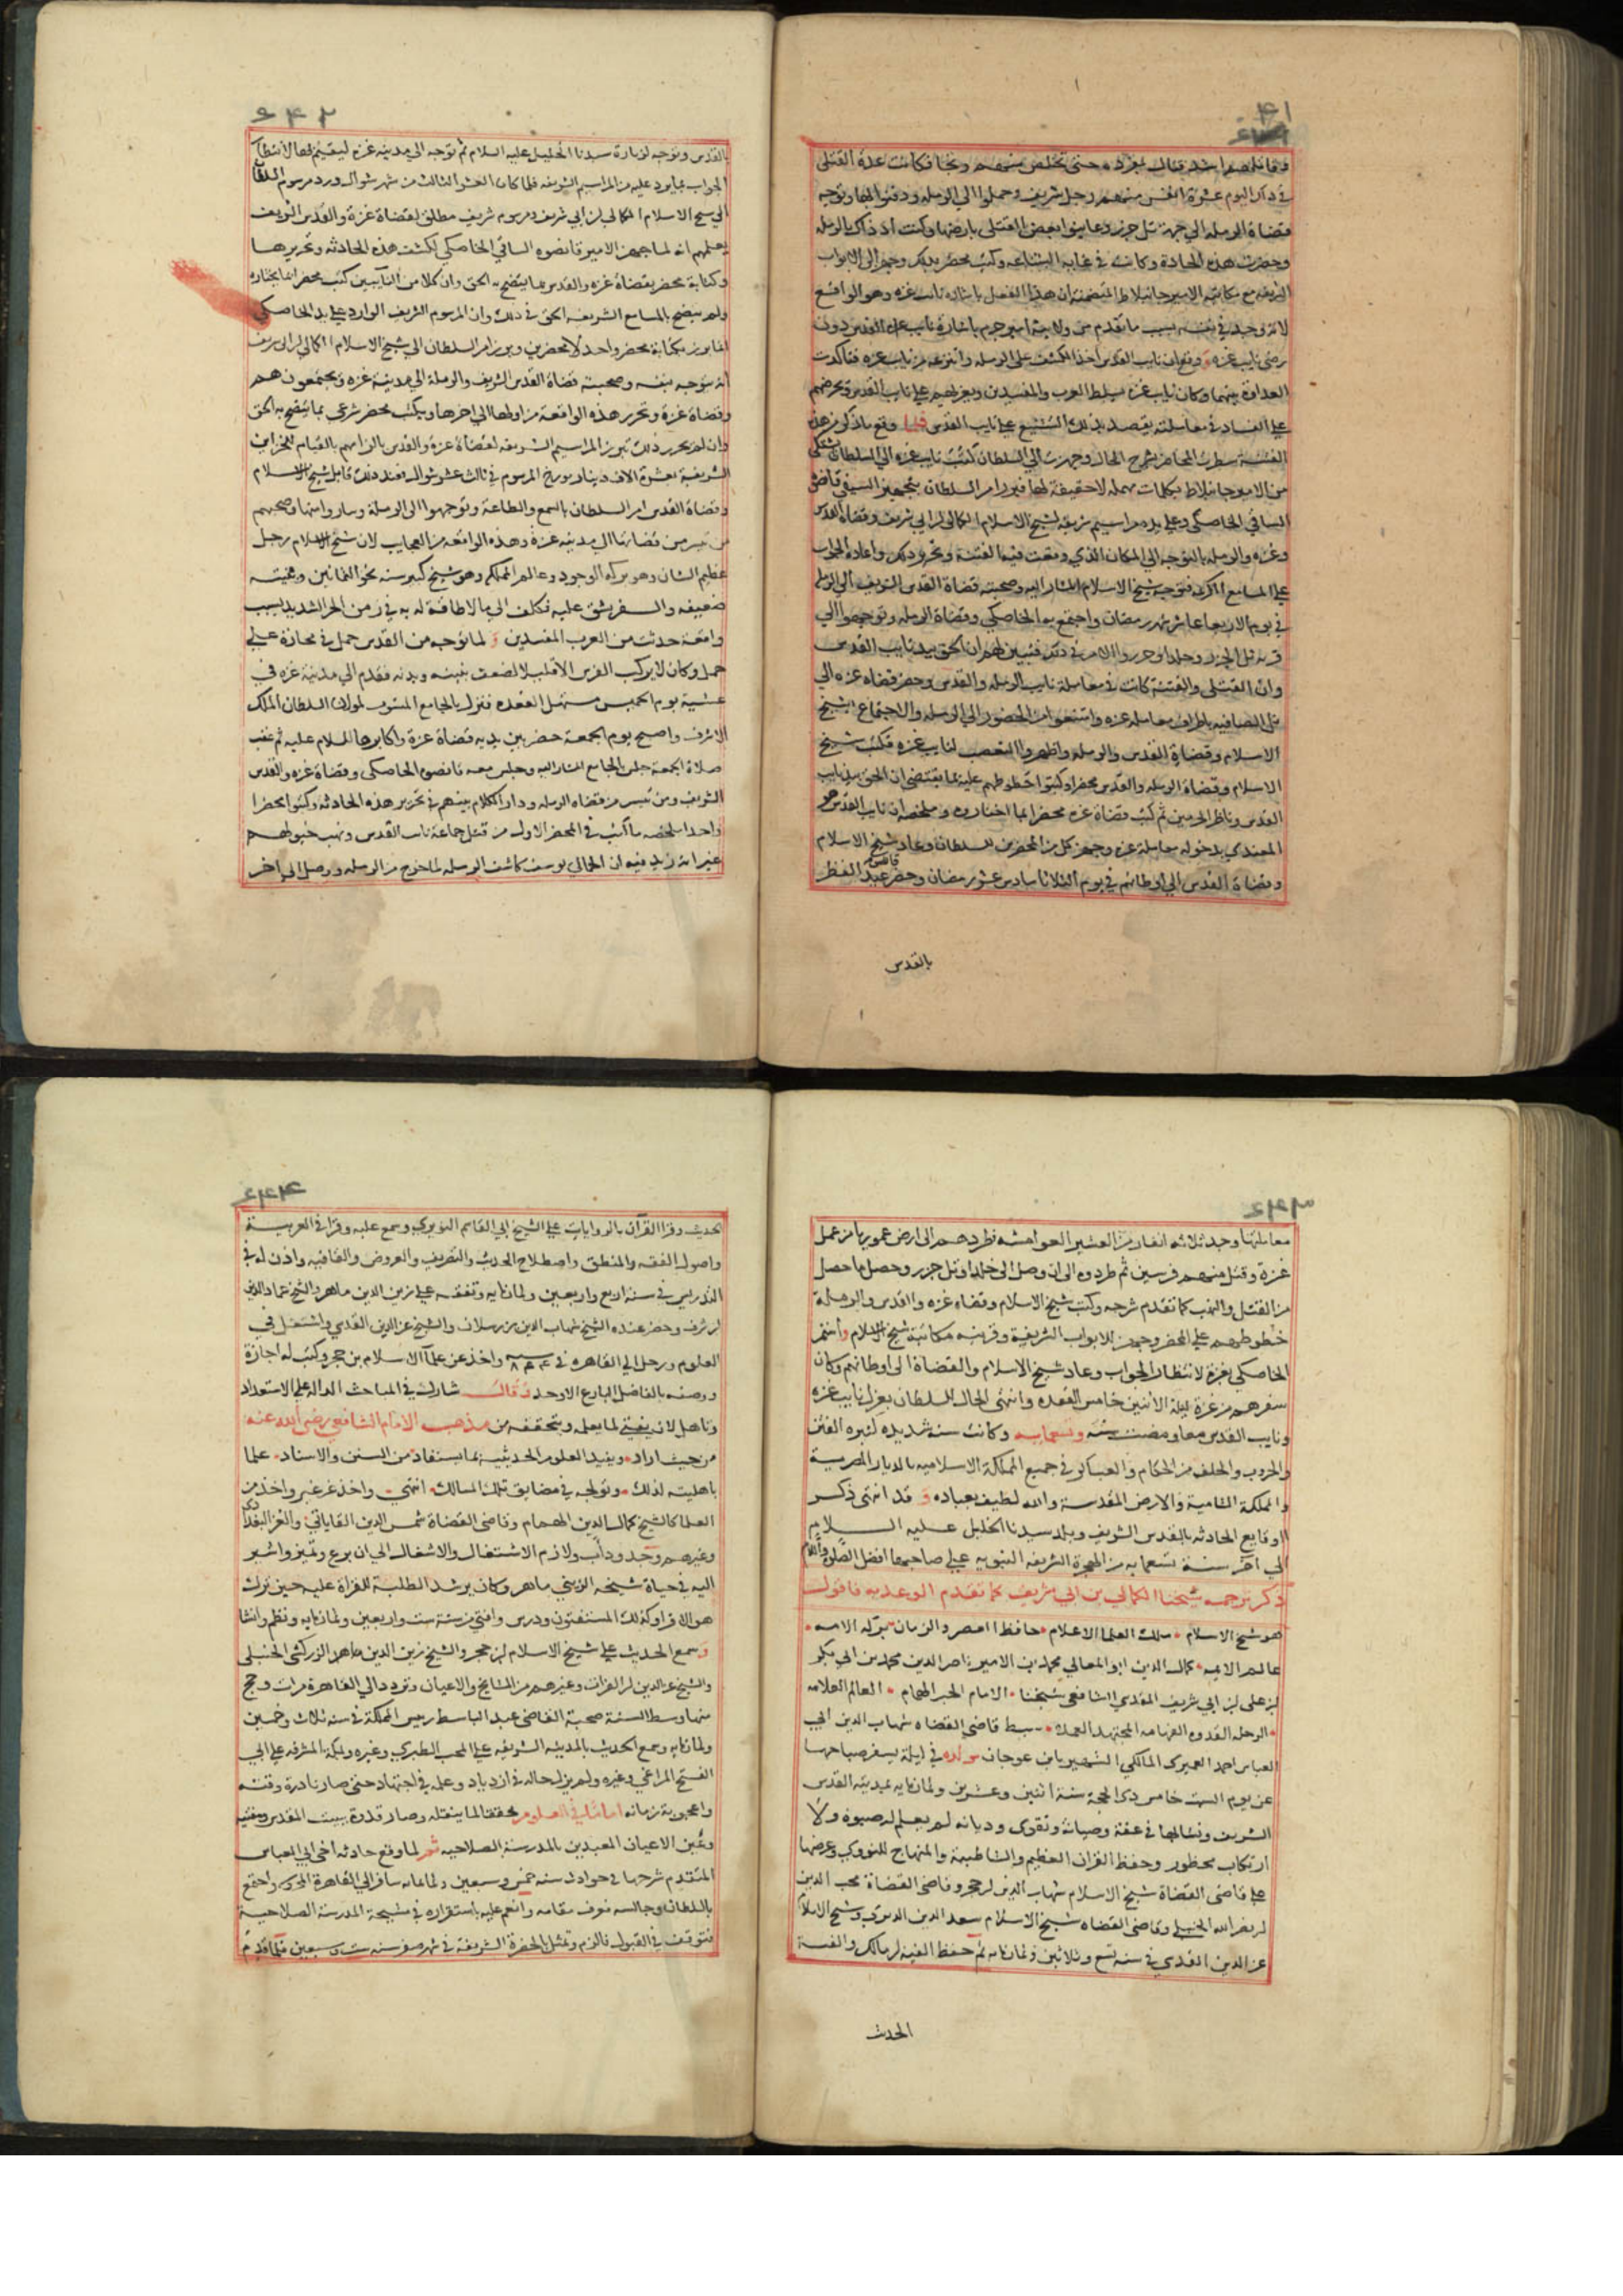 وقاتلهم اشد قتال بمفرده حتى تخلص منهم ونجا فكانت عدة القتلى
في ذلك اليوم عشرة انفس منهم رجل شريف وحملوا الي الرملة ودفنوا بها وتوجه
قضاة الرملة الي جهة تل جزر وعاينوا بعض القتلى بارضها وكنت اذ ذاك بالرملة
وحضرت هذه الحادثة وكانت في غاية الشناعة وكتب محضر بذلك وجهز الى الابواب
الشريفة مع مكاتبة الامير جانبلاط المتضمنة ان هذا الفعل باشارة نايب غزه وهو الواقع
لانه وجد في نفسه بسبب ما تقدم من ولاية امير جرم باشارة نايب القدس دون
رضى نايب غزه ووقع ان نايب القدس اخذ الكشف على الرملة وانتزعه من نايب غزه فتاكدت
العداوة بينهما وكان نايب غزه يسلط العرب والمفسدين ويغريهم على نايب القدس ويحرضهم
علي الفساد في معاملته بقصد بذلك التشنيع علي نايب القدس فلما وقع ما ذكر من هذه
الفتنة سطرت المحاضر بشرح الحال وجهزت الي السلطان كتب نايب غزه الي السلطان يشكى
من الامير جانبلاط بكلمات مهملة لا حقيقة لها فبرز امر السلطان بتجهيز السيفي قانصوه
الساقي الخاصكي وعلي يده مراسيم شريفة لشيخ الاسلام الكمالي بن ابي شريف وقضاة القدس
وغزه والرملة بالتوجه الي المكان الذي وقعت فيه الفتنة وتحرير ذلك واعادة الجواب
علي المسامع الكريمة فتوجه شيخ الاسلام المشار اليه وصحبته قضاة القدس الشريف الي الرملة
في يوم الاربعا عاشر شهر رمضان واجتمع بهم الخاصكي وقضاة الرملة وتوجهوا الي
قرية تل الجزر وخلدا وحرروا الامر في ذلك فتبين لهم ان الحق بيد نايب القدس
وان القتلى والفتنة كانت في معاملة نايب الرملة والقدس وحضر قضاة غزه الي
تل الصافيه باطراف معاملة غزه وامتنعوا من الحضور الي الرملة والاجتماع بشيخ
الاسلام وقضاة القدس والرملة واظهروا التعصب لنايب غزه فكتب شيخ
الاسلام وقضاة الرملة والقدس محضرا وكتبوا خطوطهم عليه بما يقتضي ان الحق بيد نايب
القدس وناظر الحرمين ثم كتب قضاة غزه محضرا بما اختاروه وملخصه ان نايب القدس هو
المعتدي بدخوله معاملة غزه وجهز كل من المحضرين للسلطان وعاد شيخ الاسلام
وقضاة القدس الي اوطانهم في يوم الثلاثا سادس عشر رمضان وحضر قانصوه عيد الفطر
بالقدس
٢٤٢
بالقدس وتوجه لزيارة سيدنا الخليل عليه السلام ثم توجه الي مدينة غزه ليقيم بها لانتظار
الجواب بما يرد عليه من المراسيم الشريفة فلما كان العشر الثالث من شهر شوال ورد مرسوم السلطان
الي شيخ الاسلام الكمالي بن ابي شريف ومرسوم شريف مطلق لقضاة غزة والقدس الشريف
يعلمهم انه لما جهز الامير قانصوه الساقي الخاصكي لكشف هذه الحادثة وتحريرها
وكتابة محضر بقضاة غزه والقدس بما يتضح به الحق وان كلا من النايبين كتب محضرا بما يختاره
ولم يتضح بالمسامع الشريفة الحق في ذلك وان المرسوم الشريف الوارد علي يد الخاصكي
انما برز بكتابة محضر واحد لا محضرين وبرز امر السلطان الي شيخ الاسلام الكمالي بن ابي شريف
انه يتوجه بنفسه وصحبته قضاة القدس الشريف والرملة الي مدينة غزه ويجتمعون هم
وقضاة غزة وتحرر هذه الواقعة من اولها الي اخرها ويكتب محضر شرعي بما يتضح به الحق
وان لم يحرر ذلك تبرز المراسيم الشريفة لقضاة غزة والقدس بالزامهم بالقيام للخزاين
الشريفة بعشرة الاف دينار وتوريخ المرسوم في ثالث عشر شوال فعند ذلك قابل شيخ الاسلام
وقضاة القدس امر السلطان بالسمع والطاعة وتوجهوا الي الرملة وساروا منها وصحبتهم
من تيسر من قضاتها الي مدينة غزة وهذه الواقعة من العجايب لان شيخ الاسلام رجل
عظيم الشان وهو بركة الوجود وعالم المملكة وهو شيخ كبير سنه نحو الثمانين وبنيته
ضعيفه والسفر يشق عليه فكلف الي ما لا طاقة له به في زمن الحر الشديد بسبب
واقعة حدثت من العرب المفسدين ولما توجه من القدس حمل في محارة علي
جمل وكان لا يركب الفرس الا قليلا لضعف بنيته وبدنه فقدم الي مدينة غزه في
عشية يوم الخميس مستهل القعده فنزل بالجامع المنسوب لمولانا السلطان الملك
الاشرف واصبح يوم الجمعة حضر بين يديه قضاة غزة واكابرها للسلام عليه ثم عقب
صلاة الجمعة جلس بالجامع المشار اليه وجلس معه قانصوه الخاصكي وقضاة غزه والقدس
الشريف ومن تيسر من قضاة الرملة ودار الكلام بينهم في تحرير هذه الحادثة وكتبوا محضرا
واحدا ملخصه ما كتب في المحضر الاول من قتل جماعة نايب القدس ونهب خيولهم
غير انه زيد فيه ان الجمالي يوسف كاشف الرملة لما خرج من الرملة ووصل الى اخر
معاملتها وجد ثلاثة انفار من العشير العوامشه فطردهم الى ارض عموريا من عمل
غزة وقتل منهم فرسين ثم طردوه الى ان وصل الى خلدا وتل جزر وحصل ما حصل
من القتل والنهب كما تقدم شرحه وكتب شيخ الاسلام وقضاة غزه والقدس والرملة
خطوطهم علي المحضر وجهز للابواب الشريفة وقرينه مكاتبة شيخ الاسلام واستمر
الخاصكي بغزة لانتظار الجواب وعاد شيخ الاسلام والقضاة الى اوطانهم وكان
سفرهم من غزة ليلة الاثنين خامس القعده وانتهى الحال للسلطان بعزل نايب غزه
ونايب القدس معا ومضت سنة وتسعمايه وكانت سنة شديده كثيره الفتن
والحروب والخلف من الحكام والعساكر في جميع المملكة الاسلاميه بالديار المصرية
والمملكة الشامية والارض المقدسة والله لطيف بعباده وقد انتهى ذكر
الوقايع الحادثه بالقدس الشريف وبلد سيدنا الخليل عليه السلام
الي اخر سنة تسعمايه من الهجرة الشريفه النبويه علي صاحبها افضل الصلوة والسلام
ذكر ترجمة شيخنا الكمالي بن ابي شريف كما تقدم الوعد به فاقول
هو شيخ الاسلام ملك العلما الاعلام حافظ العصر والزمان بركة الامه
عالم الايمه كمال الدين ابو المعالي محمد بن الامير ناصر الدين محمد بن ابي بكر
بن علي بن ابي شريف المقدسي الشافعي شيخنا الامام الحبر الهمام العالم العلامه
الرحلة القدوة الفهامه المجتهد العمدة سبط قاضي القضاه شهاب الدين ابي
العباس احمد العميري المالكي الشهير بابن عوجان مولده في ليلة يسفر صباحها
عن يوم السبت خامس ذى الحجة سنة اثنين وعشرين وثمانمايه بمدينة القدس
الشريف ونشا بها في عفة وصيانة وتقوى وديانه لم يعلم له صبوة ولا
ارتكاب محظور وحفظ القران العظيم والشاطبية والمنهاج للنووي وعرضها
علي قاضي القضاة شيخ الاسلام شهاب الدين بن حجر وقاضي القضاة محب الدين
بن نصر الله الحنبلي وقاضي القضاه شيخ الاسلام سعد الدين الديري وشيخ الاسلام
عز الدين المقدسي في سنة تسع وثلاثين وثمانمايه ثم حفظ الفية بن مالك والفية
الحديث
٢٤٤
الحديث وقرا القرآن بالروايات علي الشيخ ابي القاسم النويري وسمع عليه وقرا في العربية
واصول الفقه والمنطق واصطلاح الحديث والتصريف والعروض والقافيه واذن له في
التدريس في سنة اربع واربعين وثمانمايه وتفقه علي زين الدين ماهر والشيخ عماد الدين
بن شرف وحضر عنده الشيخ شهاب الدين بن رسلان والشيخ عز الدين القدسي واشتغل في
العلوم ورحل الي القاهره في سنة ٨٤٤ واخذ عن علما الاسلام بن حجر وكتب له اجازة
ووصفه بالفاضل البارع الاوحد وقال شارك في المباحث الدالة علي الاستعداد
وتاهل لان يفتي بما يعلمه ويتحققه من مذهب الامام الشافعي رضي الله عنه
من حيث اراد ويفيد العلوم الحديثية بما يستفاد من السنن والاسناد علما
باهليته لذلك وتولجه في مضايق تلك المسالك انتهي واخذ عن غيره واخذ من
العلما كالشيخ كمال الدين الهمام وقاضي القضاة شمس الدين القاياتي والعز البغدادي
وغيرهم وجد وداب ولازم الاشتغال والاشغال الي ان برع وتميز واشير
اليه في حياة شيخه الزيني ماهر وكان يرشد الطلبة للقراة عليه حين ترك
هو الاقرا وكذلك المستفتون ودرس وافتي من سنة ست واربعين وثمانمايه ونظم وانشا
وسمع الحديث علي شيخ الاسلام بن حجر والشيخ زين الدين طاهر الزركشي الحنبلي
والشيخ عز الدين بن الفرات وغيرهم من المشايخ والاعيان وتردد الي القاهرة مرات وحج
منها وسط السنة صحبة القاضي عبد الباسط رييس المملكة في سنة ثلاث وخمسين
وثمانمايه وسمع الحديث بالمدينة الشريفه علي المحب الطبري وغيره وبمكة المشرفه علي ابي
الفتح المراغي وغيره ولم يزل حاله في ازدياد وعلمه في اجتهاد حتى صار نادرة وقته
واعجوبة زمانه اماما في العلوم محققا لما ينقله وصار قدوة بيت المقدس ومفتيه
وعين الاعيان المعيدين بالمدرسة الصلاحيه ثم لما وقع حادثه اخي ابي العباس
المتقدم شرحها في حوادث سنة خمس وسبعين وثمانمايه سافر الي القاهرة المحروسة واجتمع
بالسلطان وجالسه فوق مقامه وانعم عليه باستقراره في مشيخة المدرسة الصلاحية
فتوقف في القبول فالزم وتمثل بالحضرة الشريفة في شهر صفر سنة ست وسبعين فلما قدم